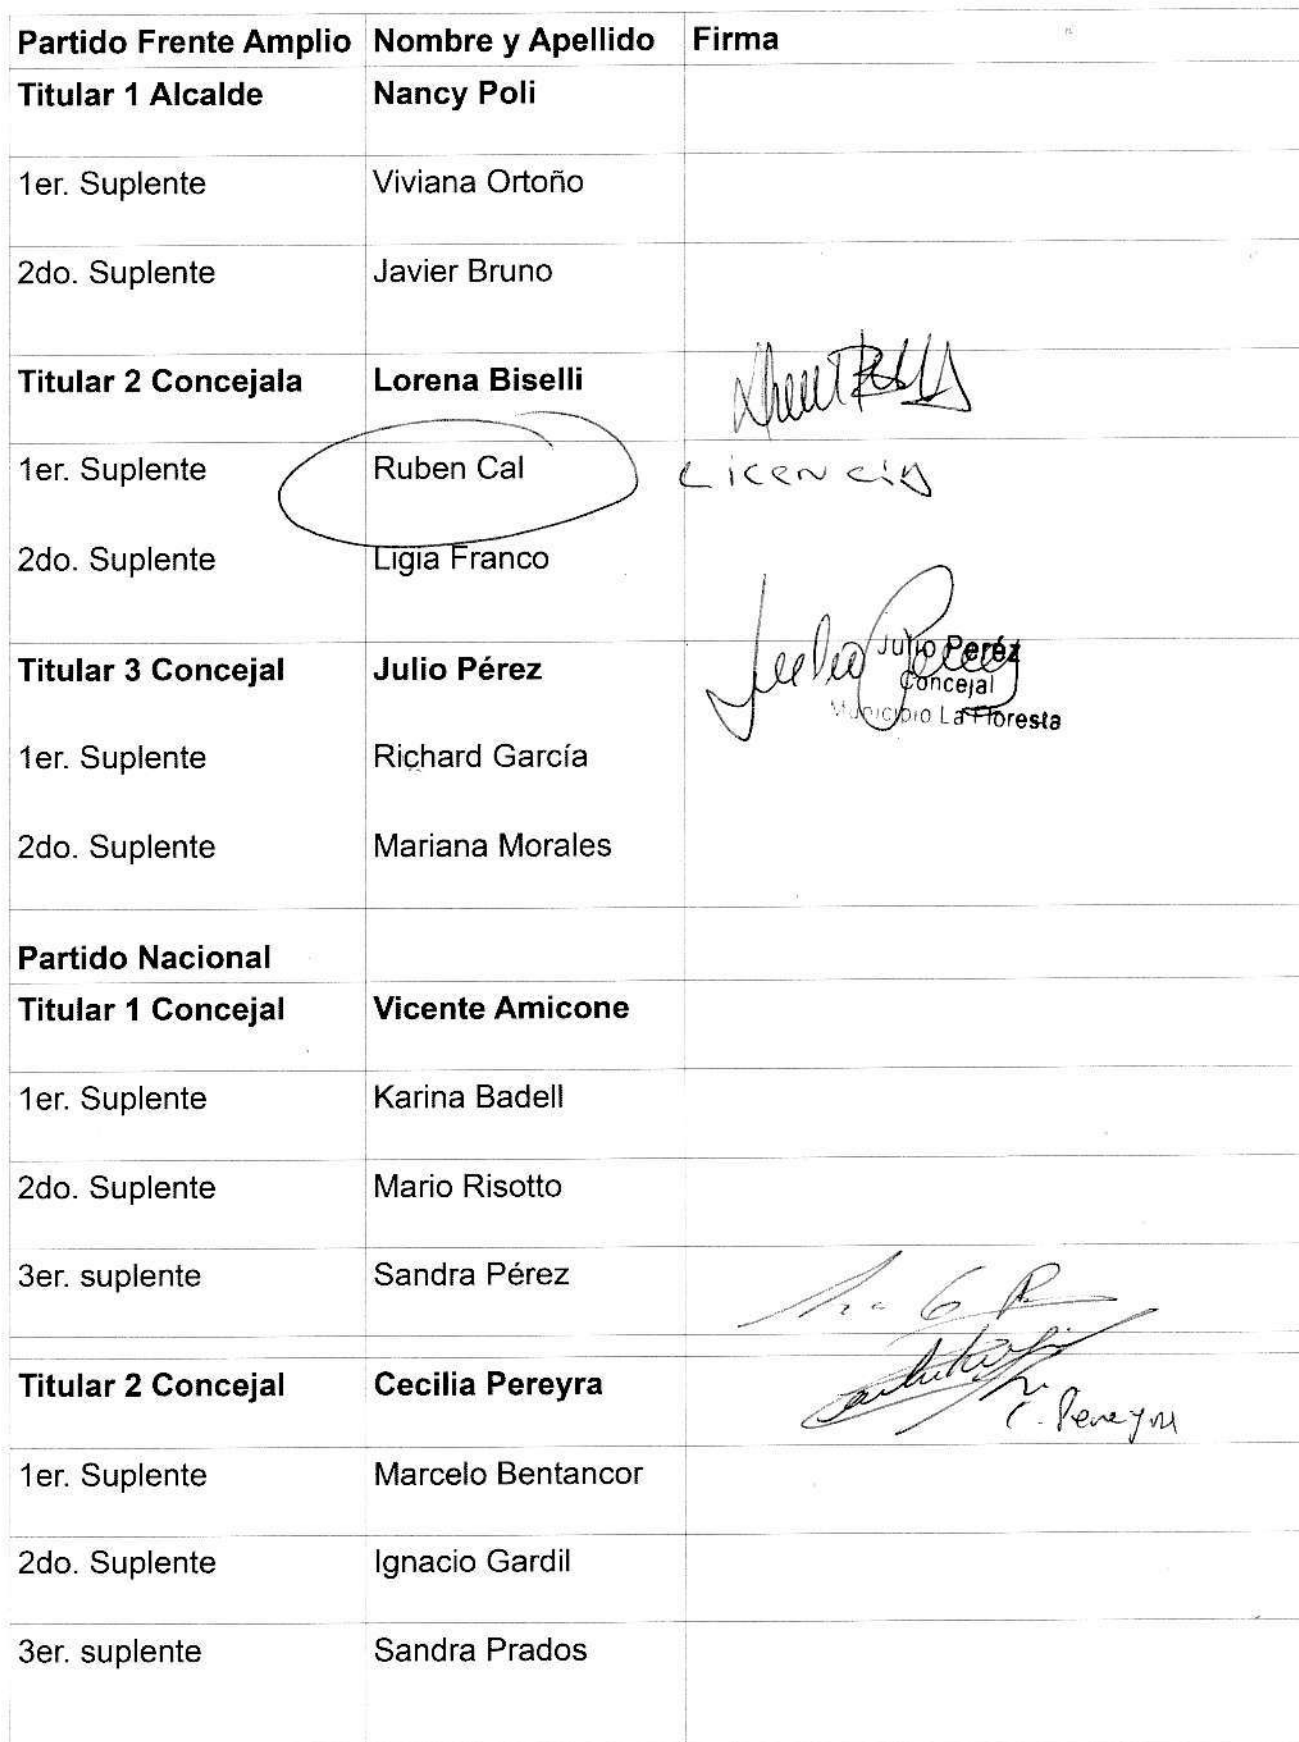 Partido Frente Amplio Nombre y Apellido Firma
Titular 1 Alcalde Nancy Poli
1er. Suplente Viviana Ortoño
2do. Suplente Javier Bruno
Titular 2 Concejala Lorena Biselli
1er. Suplente Ruben Cal Licencia
2do. Suplente Ligia Franco
Titular 3 Concejal Julio Pérez Julio Peréz
Concejal
Municipio La Floresta
1er. Suplente Richard García
2do. Suplente Mariana Morales
Partido Nacional
Titular 1 Concejal Vicente Amicone
1er. Suplente Karina Badell
2do. Suplente Mario Risotto
3er. suplente Sandra Pérez
Titular 2 Concejal Cecilia Pereyra C. Pereyra
1er. Suplente Marcelo Bentancor
2do. Suplente Ignacio Gardil
3er. suplente Sandra Prados